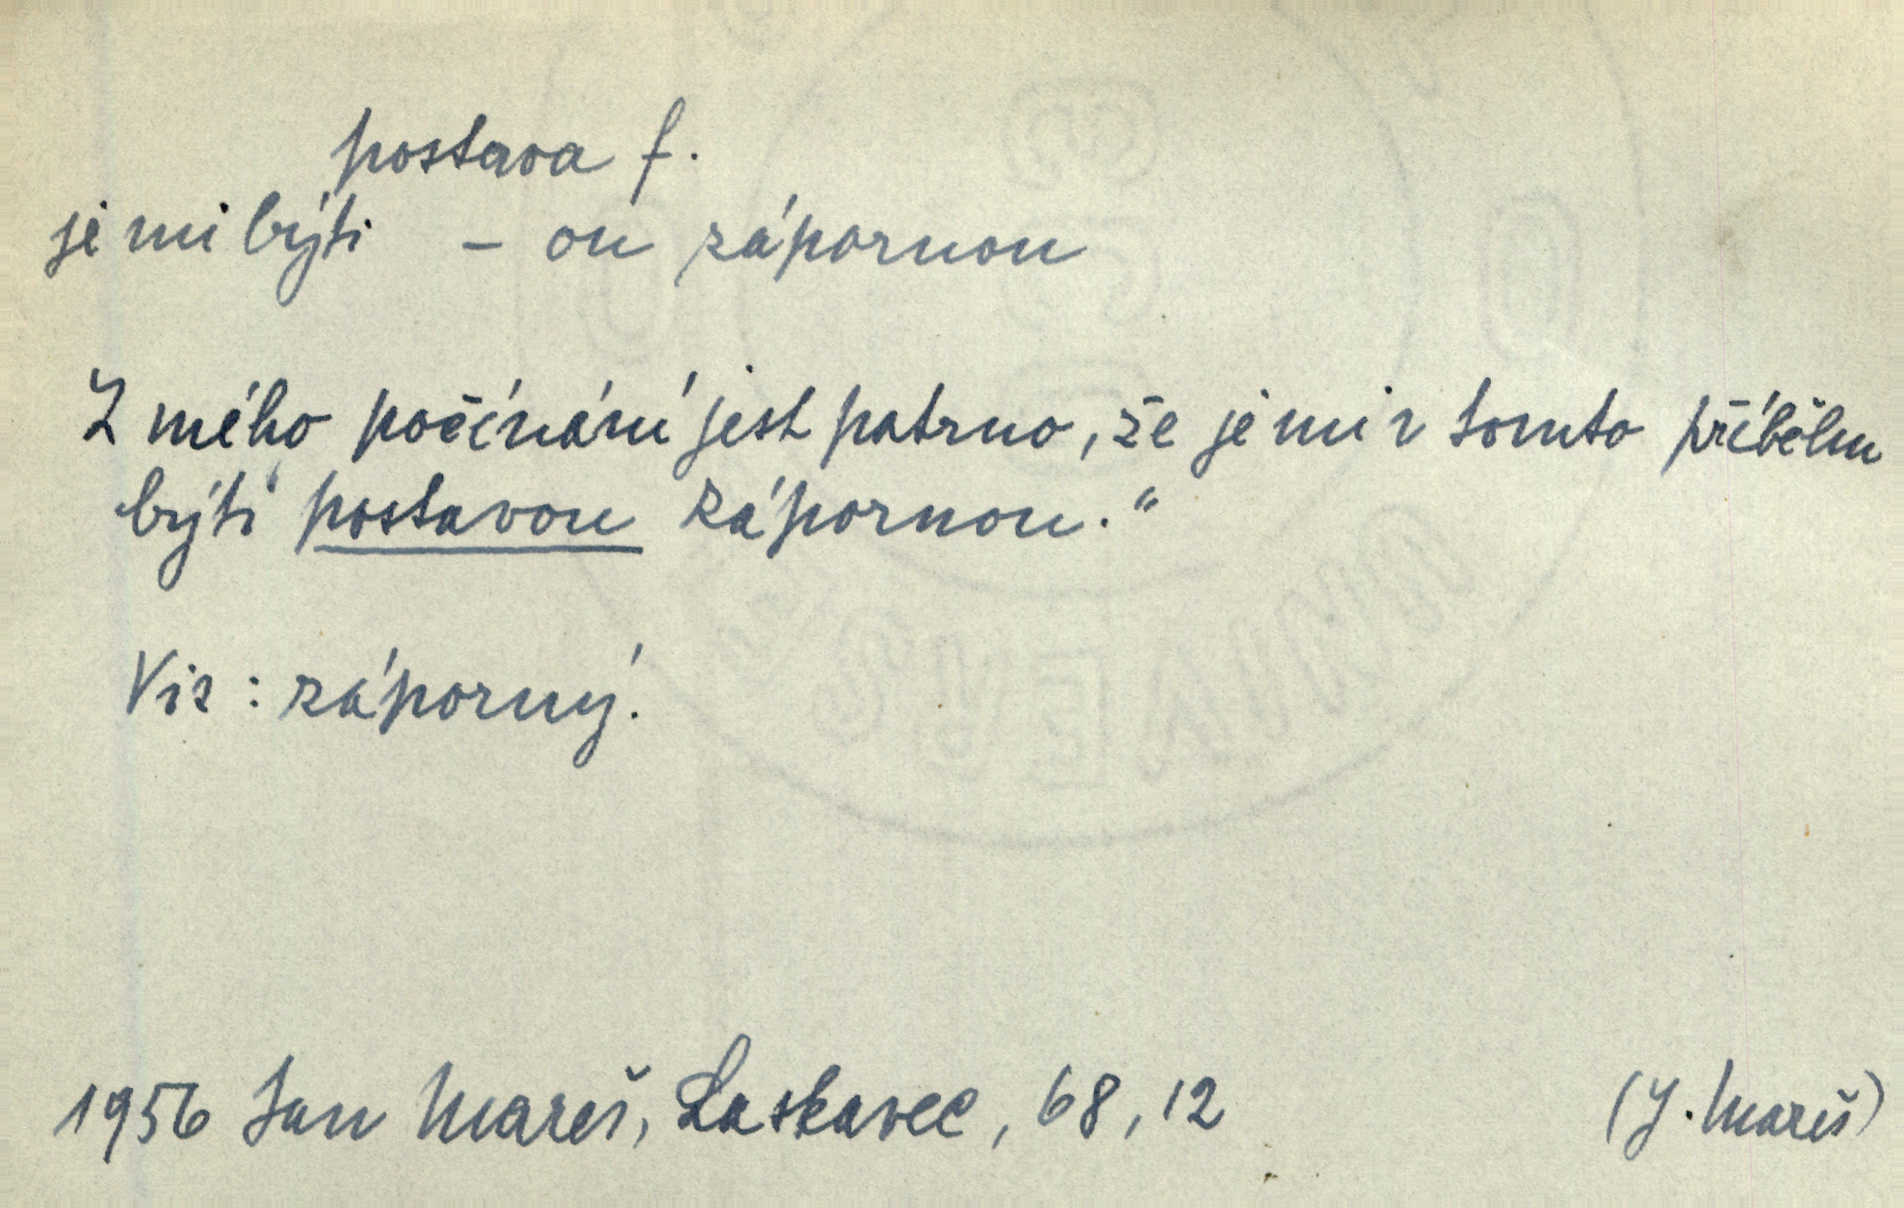 postava f.
je mi býti – ou zápornou
Z mého počínání jest patrno, že je mi v tomto příběhu
býti postavou zápornou."
Viz: záporný.
1956 Jan Mareš, Laskavec, 68, 12 (J. Mareš)